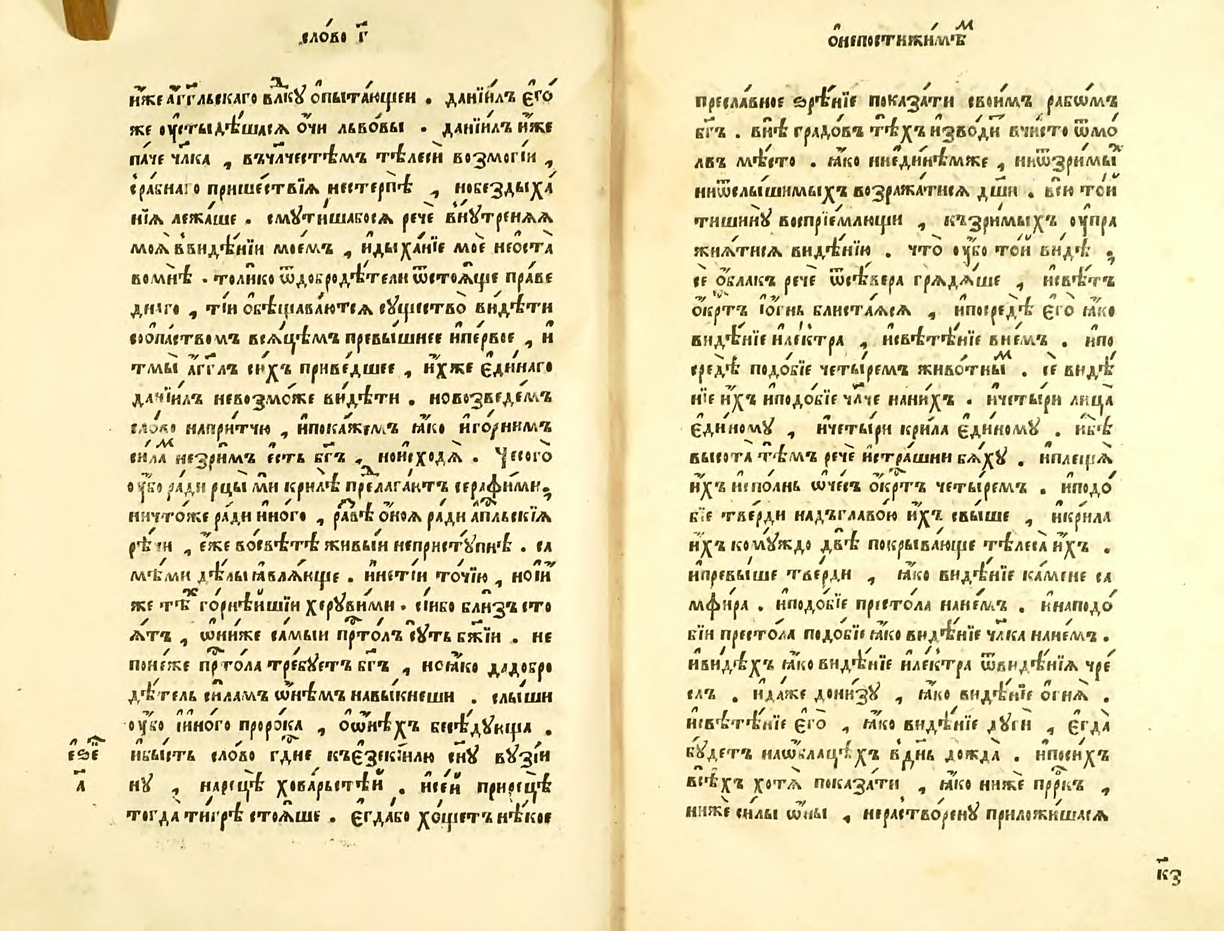 сло́во г҃
и҆́же а҆́гг҃льскаго влⷣку ѡ҆пыта́ющеи . данїи́лъ є҆го́
же ѹ҆стыдѣ́шася о҆́чи льво́вы . данїи́лъ и҆́же
па́че чл҃ка , въчл҃честѣмъ тѣ́леси возмогі́и ,
сра́бнаго прише́ствїѧ нестерпѣ̀ , нобездыха́
нїѧ лежа́ше . смꙋти́шабосѧ речѐ вну́тренѧѧ
моѧ̀ ввидѣ́нїи мое́мъ , и҆дыха́нїе моѐ неѡста̀
вомнѣ̀ . толи́ко ѿдобродѣ́тели ѿстоѧ́ще пра́ве
днаго , ті́и ѡ҆бѣщава́ютсѧ сꙋщество̀ ви́дѣти
соѻпа́ствомъ всѧ́цѣмъ превы́шнее и҆пе́рвое , и҆
тмы̀ а҆́гг҃лъ си́хъ приве́дшее , и҆́хже є҆ди́наго
данїи́лъ невозмо́же ви́дѣти . новозведе́мъ
сло́во напри́тчю , и҆пока́жемъ ꙗ҆́ко и҆го́рнимъ
си́лаⷨ незри́мъ є҆́сть бг҃ъ , нои҆сходѧ̀ . Чесого̀
ѹ҆́бо ра́ди рцы́ ми криле́ прⷣлага́ютъ серафі́ми ,
ничто́же ра́ди и҆но́го , ра́звѣ ѻ҆́ноѧ ра́ди а҆пⷭ҇льскїѧ
рѣ́чи , є҆́же восвѣ́тѣ живы́и непристꙋ́пнѣ . са
мѣ́ми дѣ́лы ꙗ҆влѧ́юще . и҆неті́и то́чїю , нои҆и҆́
же тѣⷯ го́рнѣйшїи херꙋви́ми . сі́ибо бли́зъ сто
ѧ́тъ , ѡ҆ни́же са́мыи прⷭ҇то́лъ сꙋ́ть бж҃їи . не
поне́же прⷭ҇то́ла тре́бꙋетъ бг҃ъ , ноꙗ҆́ко дадобро
дѣ́тель си́ламъ ѡ҆́нѣмъ навы́кнеши . слы́ши
ѹ҆́бо и҆и҆но́го проро́ка , ѻ҆ѡ҆́нѣхъ бесѣ́дꙋюща .
и҆бы́сть сло́во гдⷭ҇не къє҆зекі́илю сн҃ꙋ вꙋзі́и
нꙋ , нарецѣ̀ ховарьстѣ́й . и҆се́й прирецѣ̀
тогда̀ ти́грѣ стоѧ́ше . є҆гда́бо хо́щетъ нѣ́кое
і҆е҆зеⷦ҇
а҃
ѻ҆непостижи́мѣⷨ
пресла́вное зрѣ́нїе показа́ти свои́мъ рабѡ́мъ
бг҃ъ . внѣ̀ градо́въ тѣ́хъ и҆зво́ди вчи́сто ѿмо
лвъ мѣ́сто . ꙗ҆́ко ниє҆ди́нѣмже , ниѿзри́мыⷯ
ниѿслы́шимыхъ возража́тисѧ дш҃и . все́ю то́и
тишино́ю воспрїе́млющи , къзри́мыхъ ѹ҆пра
жнѧ́тисѧ ви́дѣнїю . что̀ ѹ҆́бо то́и ви́дѣ ,
се ѻ҆́блак речѐ ѿсѣ́вера грѧдѧ́ше , и҆свѣ́тъ
ѻ҆́крⷭ҇тъ і҆ѻ҆́гнь блиста́ѧсѧ , и҆посредѣ̀ є҆го̀ ꙗ҆́ко
видѣ́нїе и҆ле́ктра , и҆свѣтѣ́нїе вне́мъ . и҆по
средѣ̀ подо́бїе четы́ремъ живо́тныⷨ . се видѣ́
нїе и҆́хъ и҆подо́бїе чл҃че нани́хъ . и҆четы́ри лица̀
є҆ди́номꙋ , и҆четы́ри крила̀ є҆ди́номꙋ . и҆бѣ̀
высота̀ тѣ́мъ речѐ и҆стра́шни бѧ́хꙋ . и҆плещѧ̀
и҆́хъ и҆спо́лнь ѻ҆че́съ ѻ҆́крⷭ҇тъ четы́ремъ . и҆подо́
бїе тве́рди надъглаво́ю и҆́хъ свы́ше , и҆крила̀
и҆́хъ комꙋ́ждо двѣ̀ покрыва́юще тѣлеса̀ и҆́хъ .
и҆превы́ше тве́рди , ꙗ҆́ко видѣ́нїе ка́мене са
мфи́ра . и҆подо́бїе престо́ла нане́мъ . и҆наподо́
бїи престо́ла подо́бїе ꙗ҆́ко видѣ́нїе чл҃ка нане́мъ .
и҆ви́дѣхъ ꙗ҆́ко видѣ́нїе и҆ле́ктра ѿвидѣ́нїѧ чре́
слъ . и҆да́же дони́зꙋ , ꙗ҆́ко видѣ́нїе ѻ҆гнѧ̀ .
и҆свѣтѣ́нїе є҆го̀ , ꙗ҆́ко видѣ́нїе дꙋгѝ , є҆гда̀
бꙋ́детъ наѡ҆́блацѣхъ в дн҃ь дожда̀ . и҆поси́хъ
всѣ́хъ хотѧ̀ показа́ти , ꙗ҆́ко нижѐ прⷪ҇ркъ ,
нижѐ си́лы ѡ҆́ны , нераство́ренꙋ приложи́шасѧ
к҃з